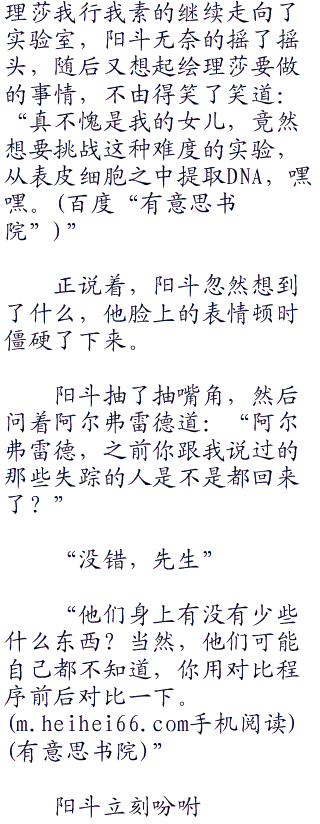 理莎我行我素的继续走向了
实验室，阳斗无奈的摇了摇
头，随后又想起绘理莎要做
的事情，不由得笑了笑道：
“真不愧是我的女儿，竟然
想要挑战这种难度的实验，
从表皮细胞之中提取DNA，嘿
嘿。(百度“有意思书
院”)”
正说着，阳斗忽然想到
了什么，他脸上的表情顿时
僵硬了下来。
阳斗抽了抽嘴角，然后
问着阿尔弗雷德道：“阿尔
弗雷德，之前你跟我说过的
那些失踪的人是不是都回来
了？”
“没错，先生”
“他们身上有没有少些
什么东西？当然，他们可能
自己都不知道，你用对比程
序前后对比一下。
(m.heihei66.com手机阅读)
(有意思书院)”
阳斗立刻吩咐